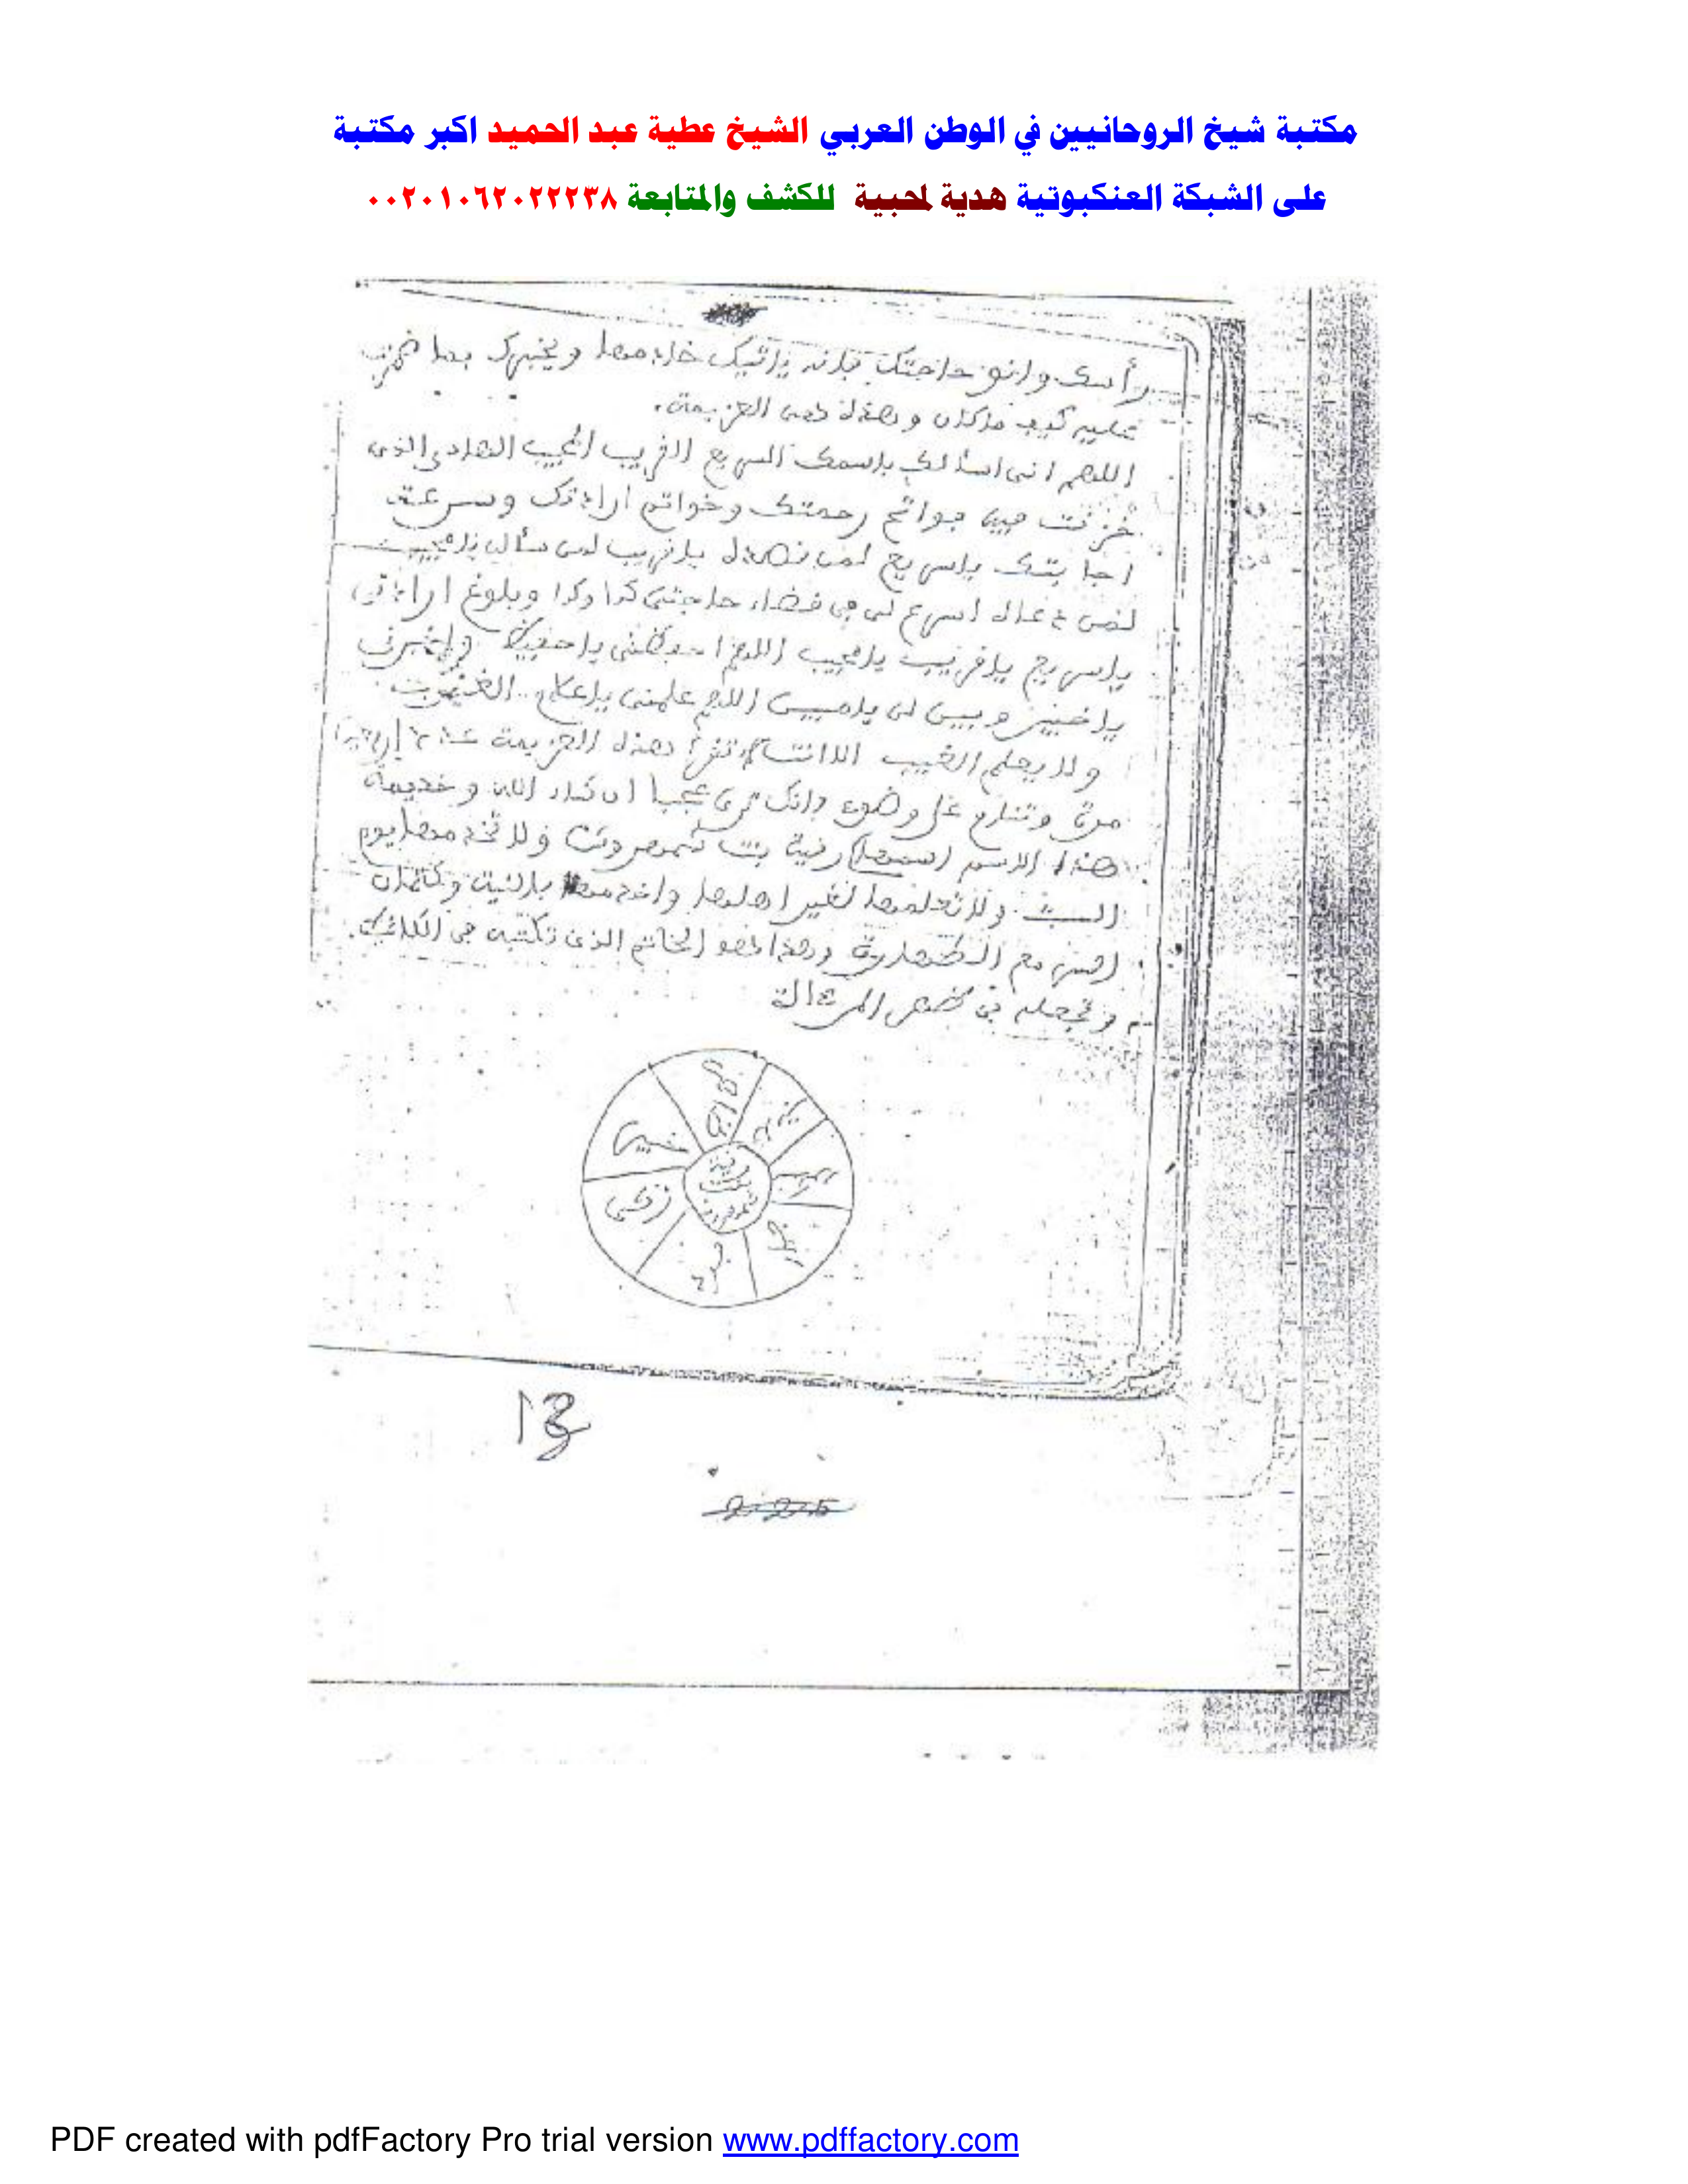 مكتبة شيخ الروحانيين في الوطن العربي الشيخ عطية عبد الحميد اكبر مكتبة
على الشبكة العنكبوتية هدية لمحبيه للكشف والمتابعة ٠٠٢٠١٠٦٢٠٢٢٢٣٨
رأسك وانو حاجتك فإنه يأتيك خادمها ويخبرك بما
كيف ماكان وهذه هى العزيمة.
اللهم انى اسألك باسمك السريع القريب المجيب الهادى الذى
خزنت فيه فواتح رحمتك وخواتم ارادتك وسرعة
اجابتك ياسريع لمن قصده ياقريب لمن سأله يامجيب
لمن دعاه اسرع لى فى قضاء حاجتى كذا وكذا وبلوغ ارادتى
ياسريع ياقريب يامجيب اللهم احفظنى ياحفيظ واخبرنى
ياخبير وبين لى يامبين اللهم علمنى ياعلام الغيوب
ولا يعلم الغيب الا انت تقرأ هذه العزيمة عدد
مرة وتنام على وضوء فانك ترى عجبا ان شاء الله وخديمة
هذا الاسم اسمها رقية بنت ولا تخدمها يوم
السبت ولا تعلمها لغير اهلها واخدمها بالنية وكتمان
السر مع الطهارة وهذا هو الخاتم الذى تكتبه فى الكاغيد.
وتجعله فى
رقية
بنت
13
PDF created with pdfFactory Pro trial version www.pdffactory.com